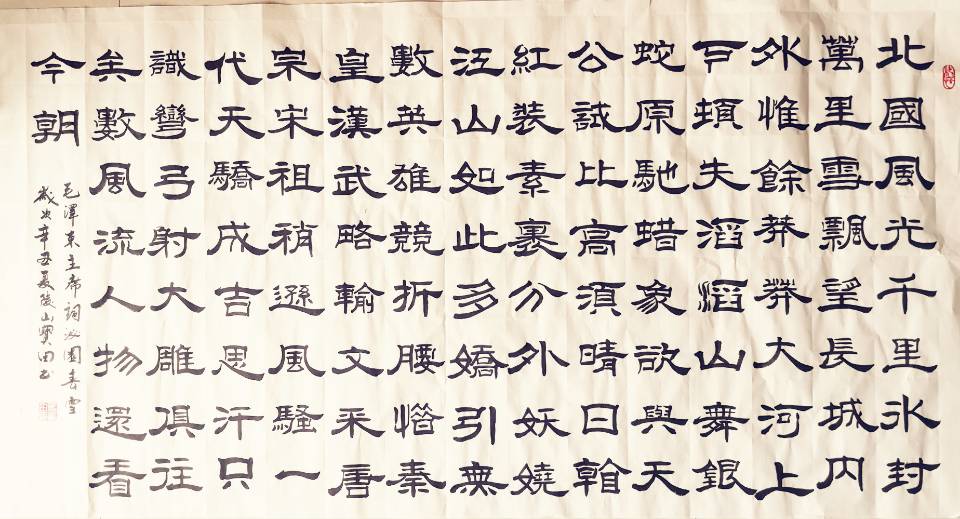 北國風光千里冰封
萬里雪飄望長城内
外惟餘莽莽大河上
下頓失滔滔山舞銀
蛇原馳蜡象欲與天
公試比高須晴日䀍
紅装素裹分外妖嬈
江山如此多嬌引無
數英雄競折腰惜秦
皇漢武略輸文采唐
宗宋祖稍遜風騷一
代天驕成吉思汗只
識彎弓射大雕俱往
矣數風流人物還看
今朝
毛澤東主席詞沁園春雪
歲次辛丑夏陵山寶田书